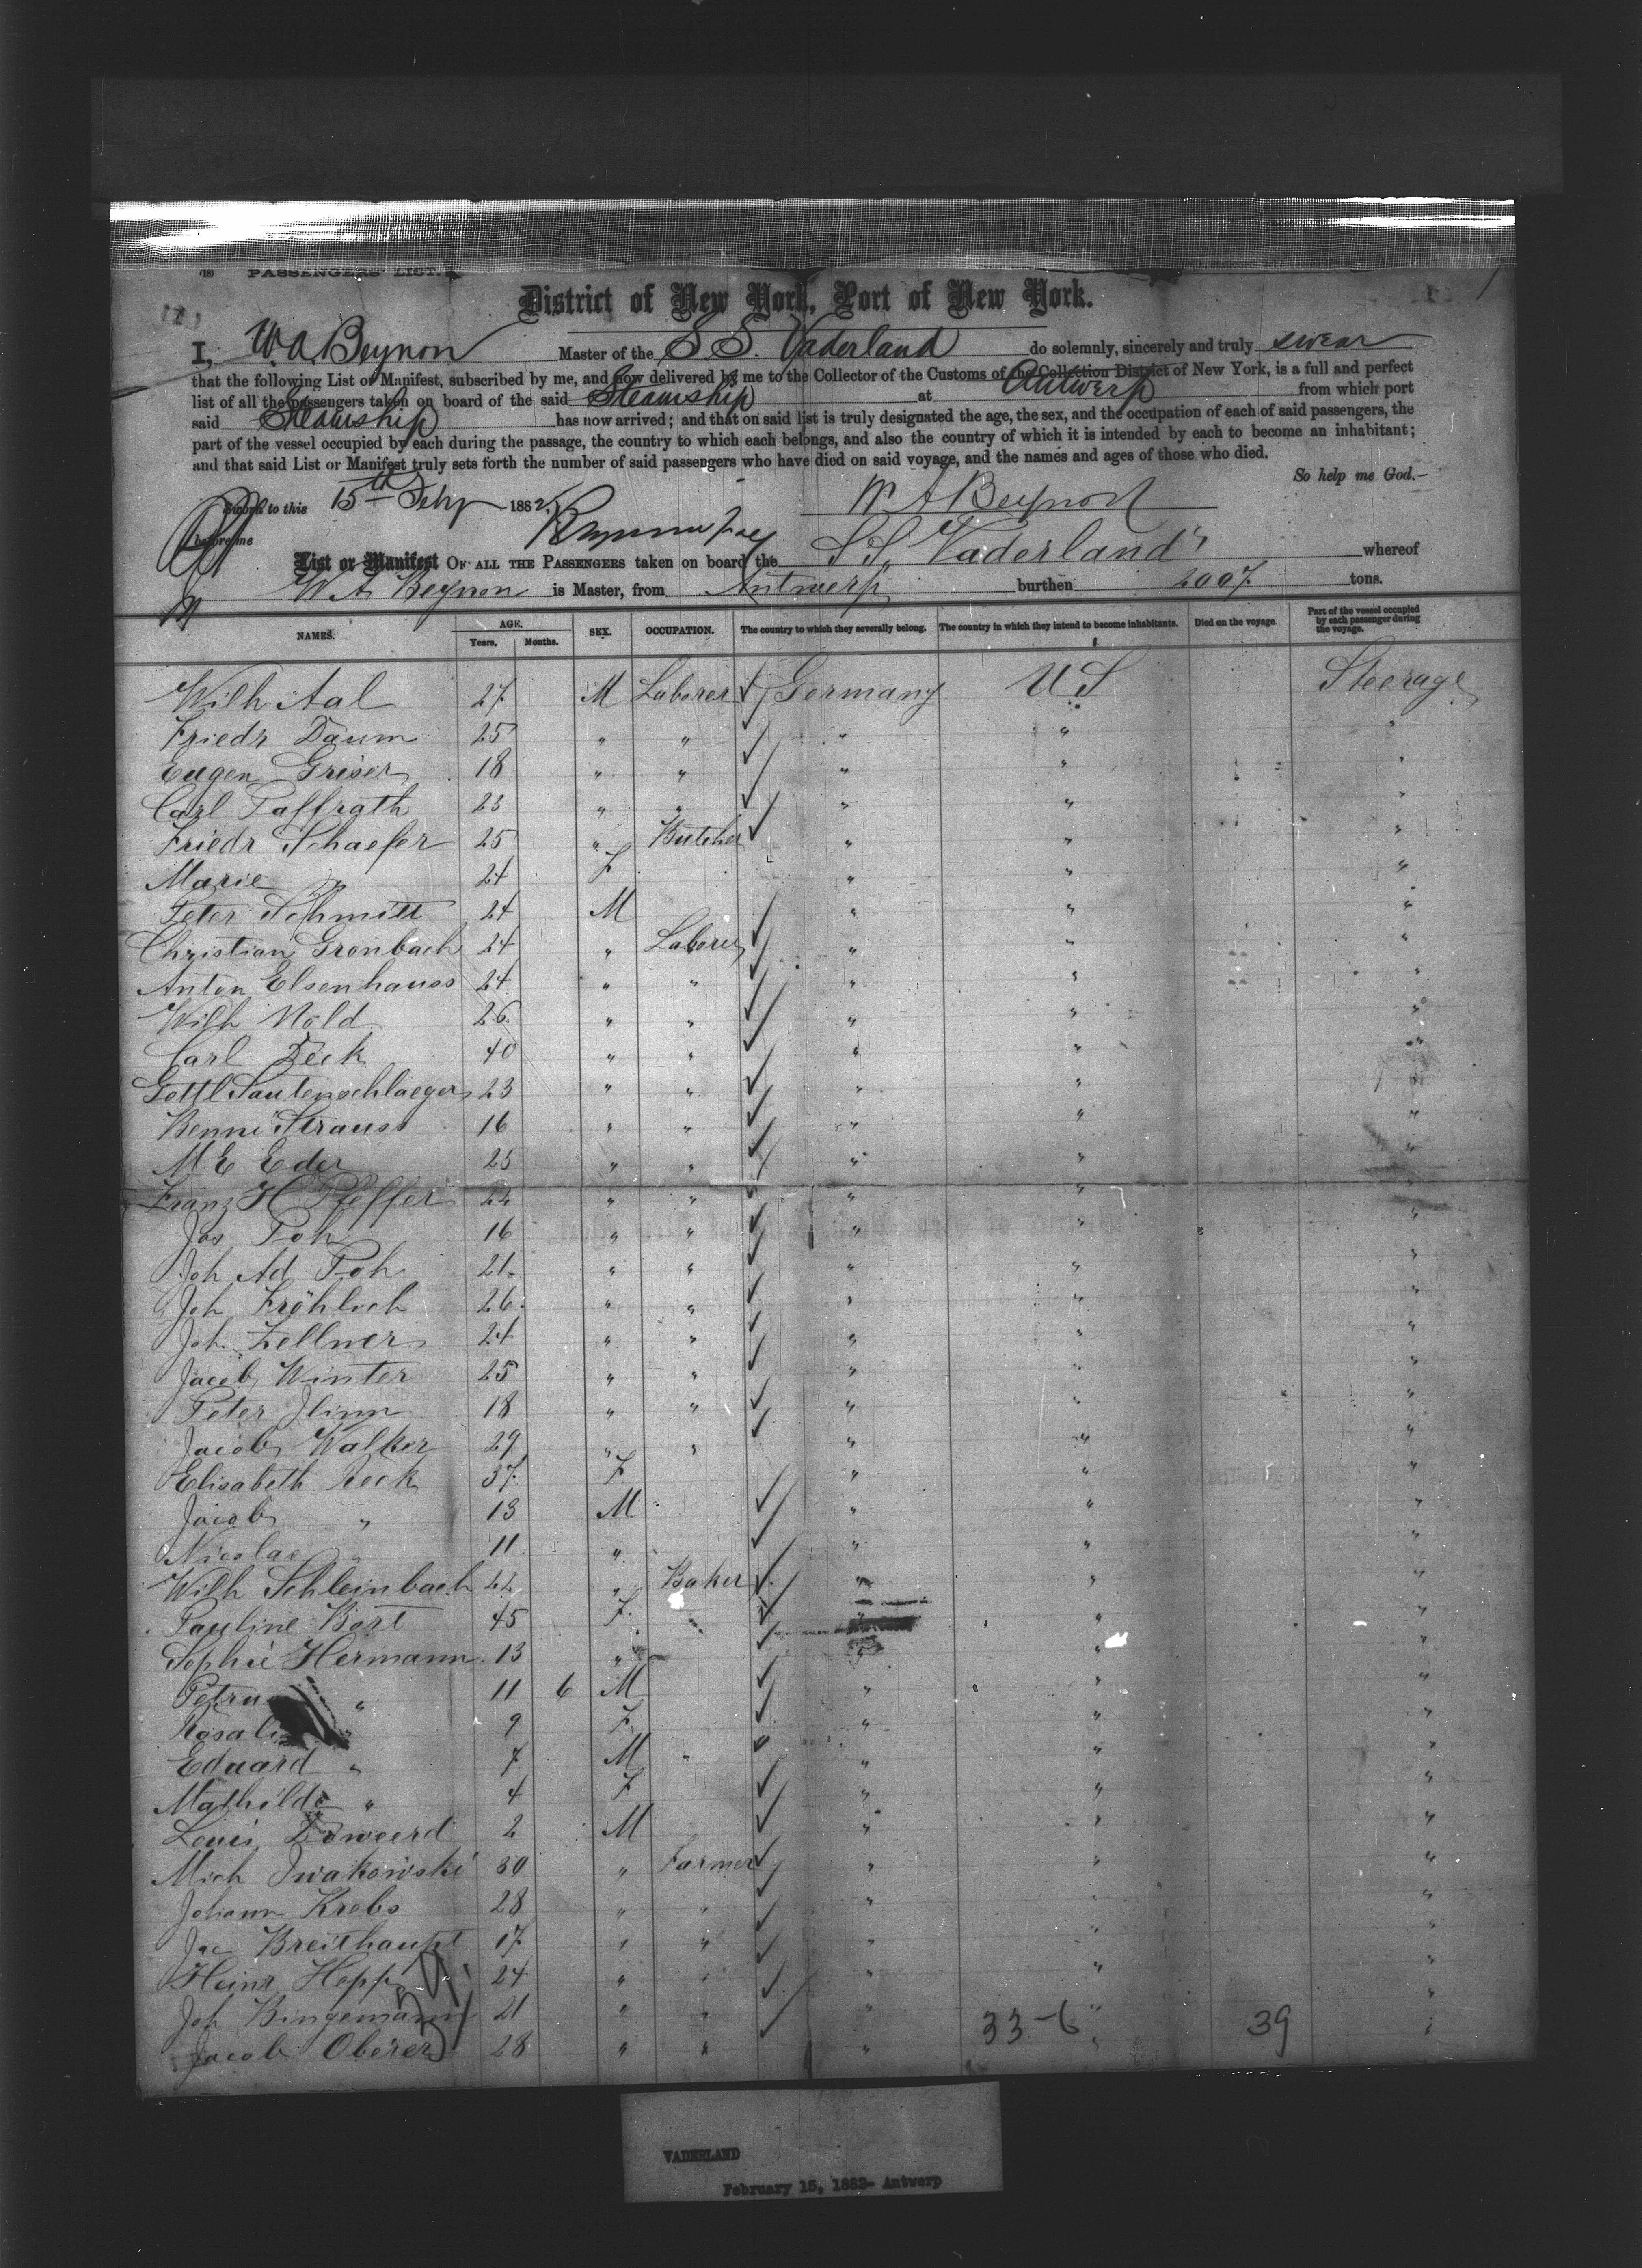 (18) PASSENGERS' LIST.
District of New York, Port of New York.
I, W. A. Beynon Master of the S S. Vaderland do solemnly, sincerely and truly swear
that the following List or Manifest, subscribed by me, and now delivered by me to the Collector of the Customs of the Collection District of New York, is a full and perfect
list of all the passengers taken on board of the said Steamship at Antwerp from which port
said Steamship has now arrived; and that on said list is truly designated the age, the sex, and the occupation of each of said passengers, the
part of the vessel occupied by each during the passage, the country to which each belongs, and also the country of which it is intended by each to become an inhabitant;
and that said List or Manifest truly sets forth the number of said passengers who have died on said voyage, and the names and ages of those who died.
So help me God.
Sworn to this 15th Feby 1882 W A Beynon
before me
List or Manifest OF ALL THE PASSENGERS taken on board the S.S. Vaderland whereof
W. A. Beynon is Master, from Antwerp burthen 2007 tons.
NAMES. AGE. Years. Months. SEX. OCCUPATION. The country to which they severally belong. The country in which they intend to become inhabitants. Died on the voyage. Part of the vessel occupied by each passenger during the voyage.
Wilh Aal 27 M Laborer Germany U S Steerage
Friedr Daum 25 " " " " "
Eugen Griser 18 " " " " "
Carl Paffrath 23 " " " " "
Friedr Schaefer 25 " Butcher " " "
Marie " 24 F " " "
Peter Schmitt 24 M " " "
Christian Gronbach 24 " Laborer " " "
Anton Elsenhauss 24 " " " " "
Wilh Nold 26 " " " " "
Carl Zeck 40 " " " " "
Gottl Lautenschlaeger 23 " " " " "
Benni Strauss 16 " " " " "
M E Eder 25 " " " " "
Franz H Pfeffer 22 " " " " "
Jos Poh 16 " " " " "
Joh Ad Poh 21 " " " " "
Joh Fröhlich 26 " " " " "
Joh Zellner 24 " " " " "
Jacob Winter 25 " " " " "
Peter Jlinn 18 " " " " "
Jacob Walker 29 " " " " "
Elisabeth Keck 37 F " " "
Jacob " 13 M " " "
Nicolas " 11 " " " "
Wilh Schleinbach 22 " Baker " " "
Pauline Bort 45 F " " "
Sophie Hermann 13 " " " "
Petrus " 11 6 M " " "
Rosalie " 9 F " " "
Eduard " 7 M " " "
Mathilde " 4 F " " "
Louis 2 M " " "
Mich Iwakowski 30 " Farmer " " "
Johann Krebs 28 " " " " "
Jac Breithaupt 17 " " " " "
Heinr Hepp 24 " " " " "
Joh Bingemann 21 " " " " "
Jacob Oberer 28 " " " " "
33-6 39
VADERLAND
February 15, 1882- Antwerp